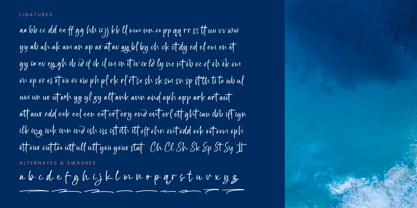 LIGATURES
aa bb cc dd ee ff gg hh ii jj kk ll mm nn oo pp qq rr ss tt uu vv ww
yy ab ah ak am an ap ar at av ay bl by ch ck ct dy ed el em en et
gy ia ev ey gh ib id if ik il im in it iv ix ld ly ne nt ob oc of oh ok om
on op or os ot ou ov ow ph pl rk rl rt se sh sk sm sn sp st th ti to ub ul
um un ur ut wh yg yl zy alt ank ann and aph app ark art aut
att aur add eek eel een eet ert ery end ent erl ett ght ian ibb ift ign
ilk ing ink inn ind ish iss ist ith itt off ohn ont odd ook oot om oph
ott our out too utt ull utt you your stat Ch Cl Sh Sk Sp St Sy II
ALTERNATES & SWASHES
a b c d e f g h i j k l m n o p q r s t u v x y z